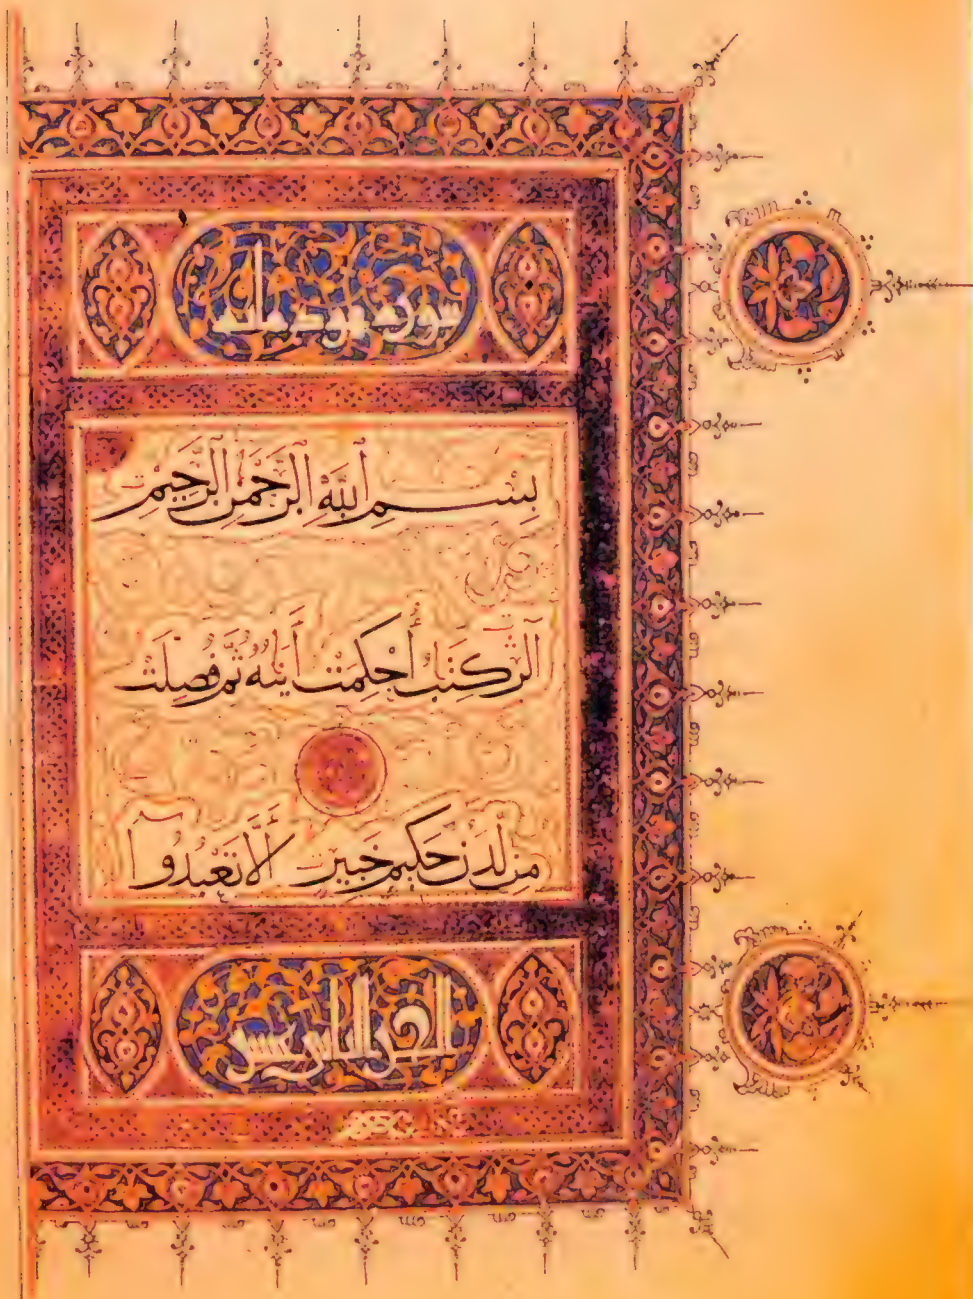 سورة هود مائة
بِسْمِ ٱللَّهِ ٱلرَّحْمَٰنِ ٱلرَّحِيمِ
الٓر كِتَٰبٌ أُحْكِمَتْ ءَايَٰتُهُ ثُمَّ فُصِّلَتْ
مِن لَّدُنْ حَكِيمٍ خَبِيرٍ أَلَّا تَعْبُدُوٓا